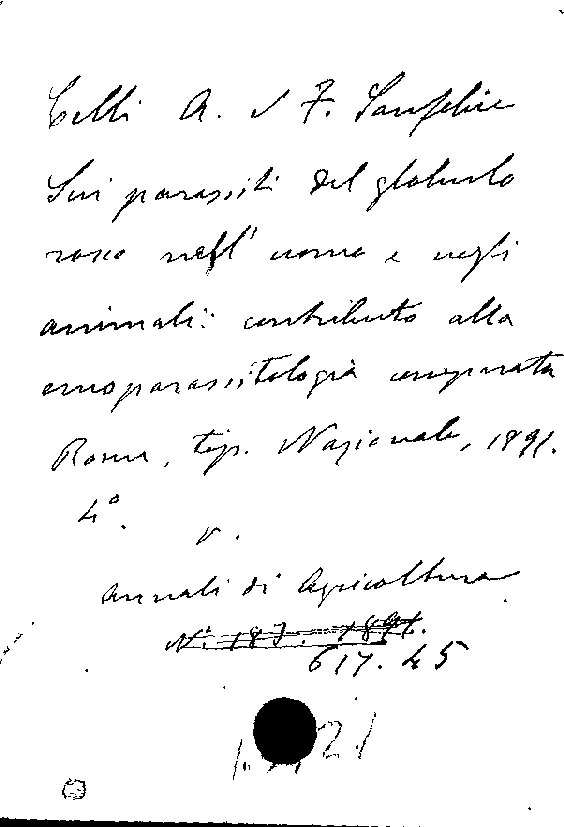 Celli A. e F. Sanfelice
Sui parassiti del globulo
rosso nell' uomo e negli
animali: contributo alla
emoparassitologia comparata
Roma, tip. Nazionale, 1891.
4°.
v.
Annali di Agricoltura
N.° 183. 1891.
617.45